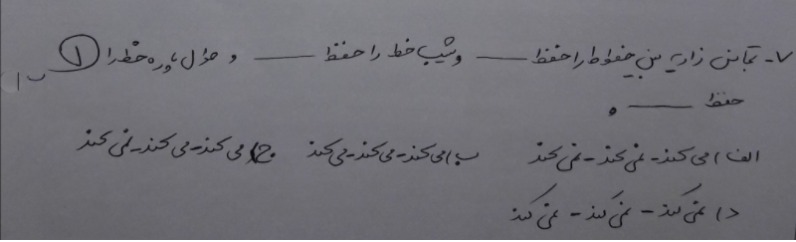 ۷- تجانس زاویه بین خطوط را حفظ ــــــ و شیب خط را حفظ ــــــ و طول پاره خط را ①
حفظ ــــــ .
الف) می کند - نمی کند - نمی کند ب) می کند - می کند - می کند ج) می کند - می کند - نمی کند
د) نمی کند - نمی کند - نمی کند